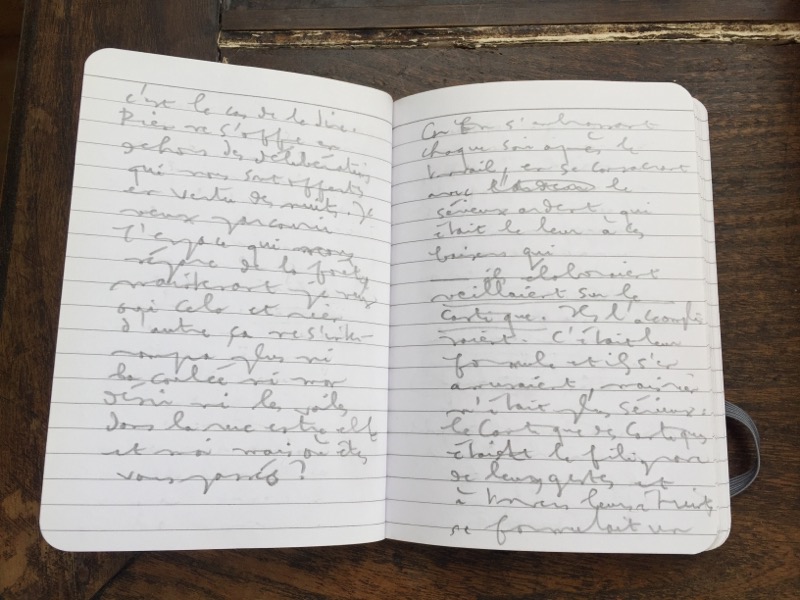 c'est le cas de le dire.
Rien ne s'offre en
dehors des délibérations
qui nous sont offertes
en vertu des nuits. Je
veux parcourir
l'espace qui nous
sépare de la forêt
maintenant je veux
que cela et rien
d'autre ça ne s'inter-
rompra plus ni
la coulée ni mon
désir ni les voiles
dans la rue entre elle
et moi mais où êtes
vous passés ?
s'adressant
chaque soir après le
travail, en se consacrant
avec le
sérieux ardent qui
était le leur à ces
baisers qui
ils élaboraient
veillaient sur le
cantique. Ils l'accomplis
saient. C'était leur
formule et ils s'en
amusaient, mais rien
n'était plus sérieux
le Cantique des Cantiques
était le filigrane
de leurs gestes et
à travers leurs nuits
se formulait un